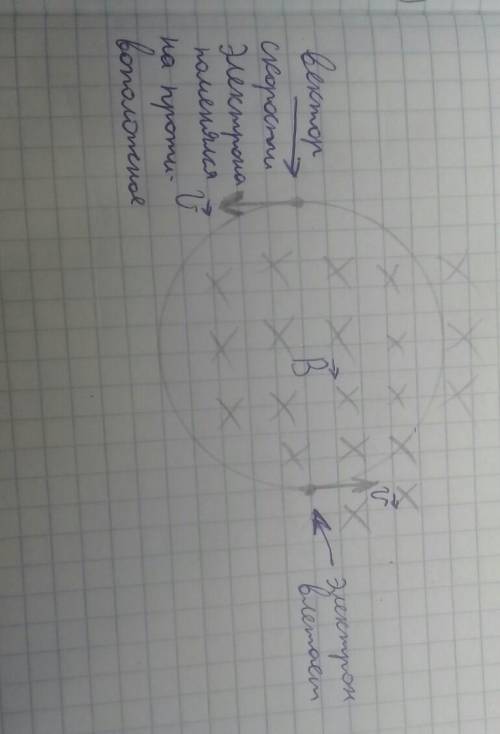 вектор
скорости
электрона
поменялся
на проти-
воположное
v⃗
B⃗
v⃗
Электрон
влетает